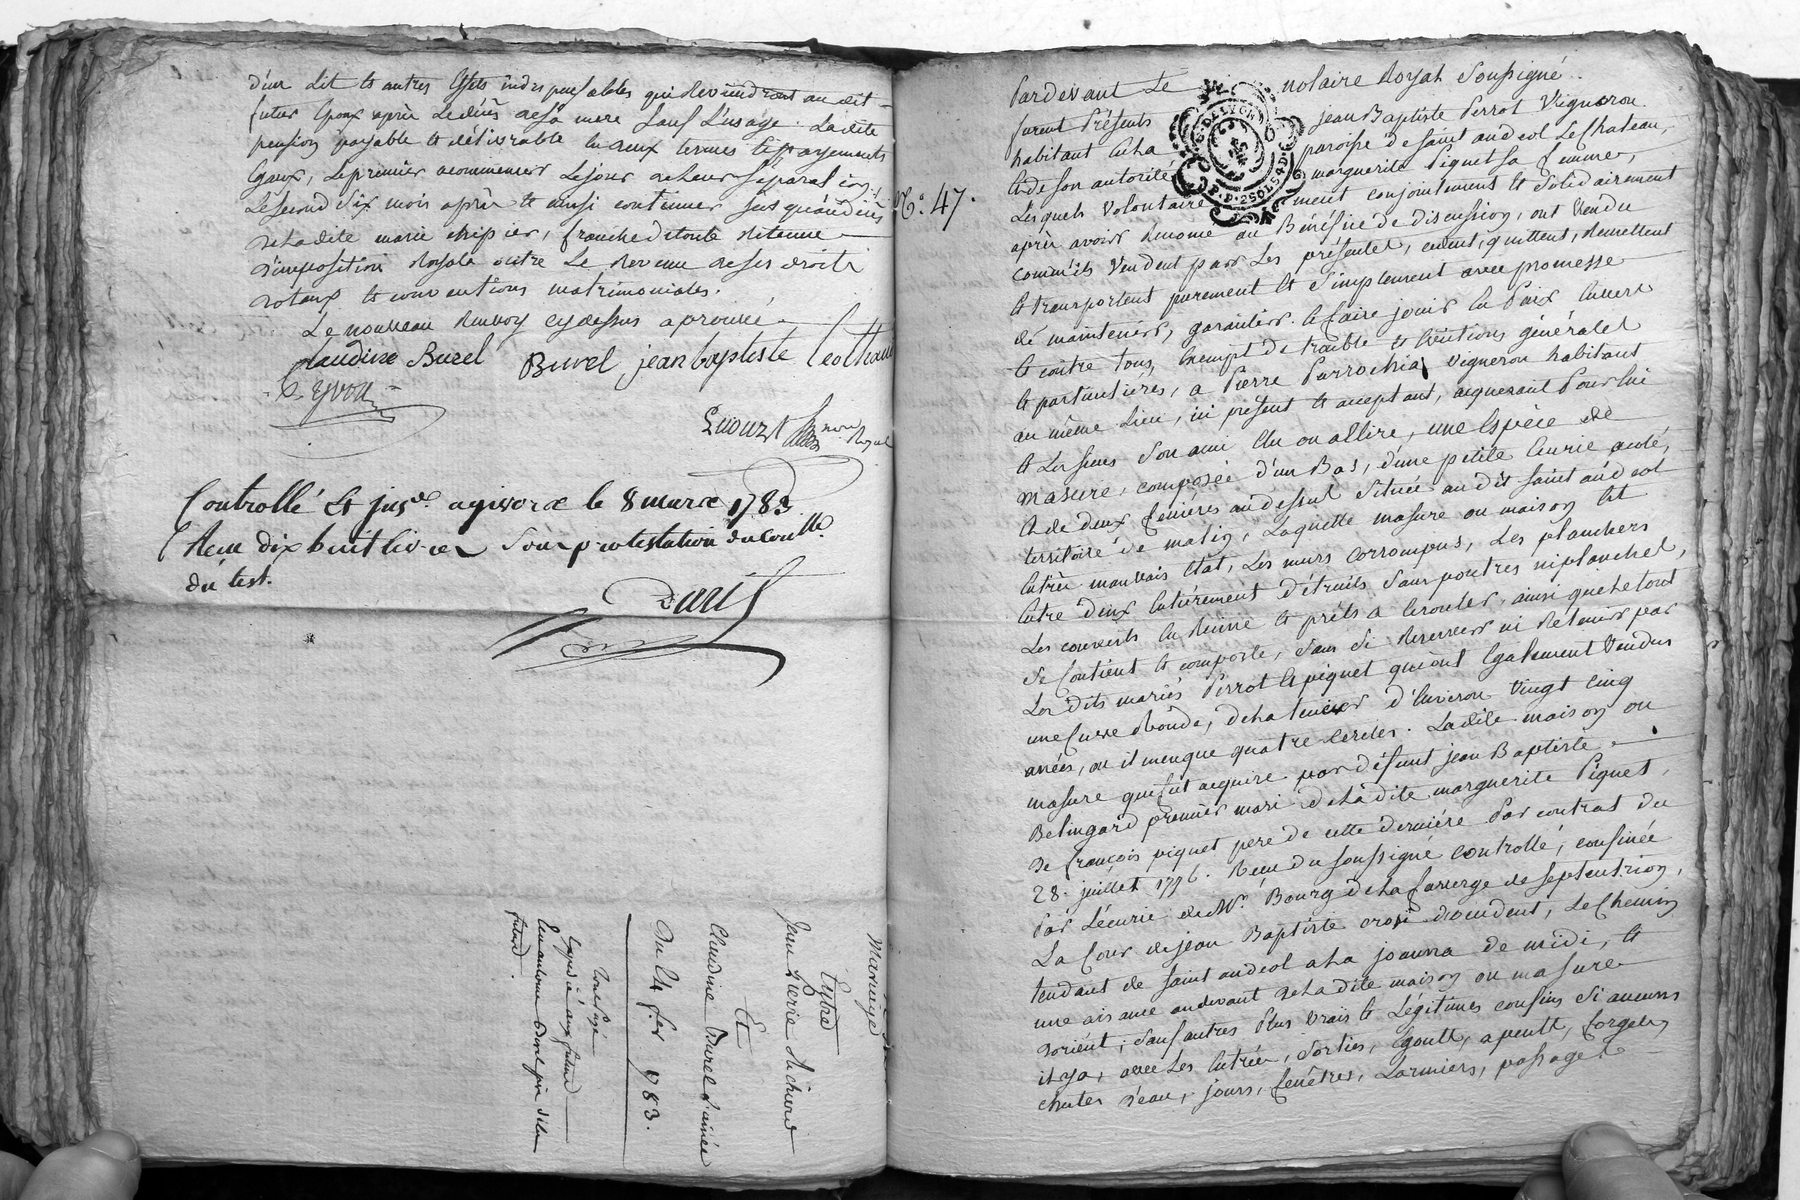 d'un Lit et autres Effets indispensables qui Reviendront au dit
futur Epoux après Le décès de sa mere sauf L'usage. La dite
pension payable et délivrable en deux termes et payements
Egaux, Le premier a commencer Le jour de leur séparation,
Le second six mois après et ainsi continuer jusqu'au décès
de La dite marie chipier, franche de toute Retenue
d'imposition Royale outre Le Revenu de ses droits
dotaux et conventions matrimoniales.
Le nouveau Renvoy cy dessus aprouvé.
claudine Burel Burel jean baptiste
Peyvon
Controllé et jnsé. a givorx le 8 marx 1783
Recu dix huit livres sous protestation du Coulle.
du test.
Mariage
Entre
Jean Pierre Richard
Et
Claudine Burel d'aînée
Du 24 fer 1783.
Expedié aux futurs
futurs.
No. 47.
G. DE LYON
P.P. 2 SOLS 4 D
Pardevant Le notaire Royal soussigné
furent Présents jean Baptiste Perrot Vigneron
habitant en La paroisse de saint andeol Le Chateau,
et de son autorité marguerite Piguet sa femme,
Lesquels volontairement conjointement et solidairement
après avoir Renoncé au Bénéfice de discussion, ont vendu
comm'ils vendent par Les présentes, cedent, quittent, Remettent
et transportent purement et simplement avec promesse
de maintenir, garantir et faire jouir en Paix Envers
et contre tous, Exempt de trouble et Evictions générales
et particulières, a Pierre Parrochia vigneron habitant
au même Lieu, ici present et acceptant, acquerant Pour lui
et Les siens son ami Elu ou a Elire, une Espèce de
masure, composée d'un Bas, d'une petite Ecurie a coté,
et de deux fenières au dessus située au dit saint andeol
territoire de malin, Laquelle masure ou maison est
En très mauvais Etat, Les murs corrompus, Les planchers
Entre deux Entièrement détruits sans poutres ni planches,
Les couverts En Ruine et prêts a Ecrouler, ainsi que Le tout
se Contient et comporte, sans si Reserver ni Retenir par
Les dits mariés Perrot et piguet qui ont Egalement Vendus
une Cuve Ronde, de La teneur d'Environ Vingt cinq
anées, ou il manque quatre Cercles. La dite maison ou
masure que fut acquise par défunt jean Baptiste
Belingard premier mari de La dite marguerite Piguet,
de françois piguet pere de cette derniére Par contrat du
28. juillet 1776. Recu du soussigné controllé, confinée
Par L'écurie de Mr. Bourg de La faverge de septentrion,
La Cour de jean Baptiste crosi d'occident, Le Chemin
tendant de saint andeol a La joanna de midi, et
une aisance au devant de La dite maison ou masure
d'orient; sauf autres Plus vrais et Légitimes confins si aucuns
il y a, avec Les Entrées, sorties, Egoutt, apentt, forgets,
chutes d'eau, jours, fenêtres, Larmiers, passages